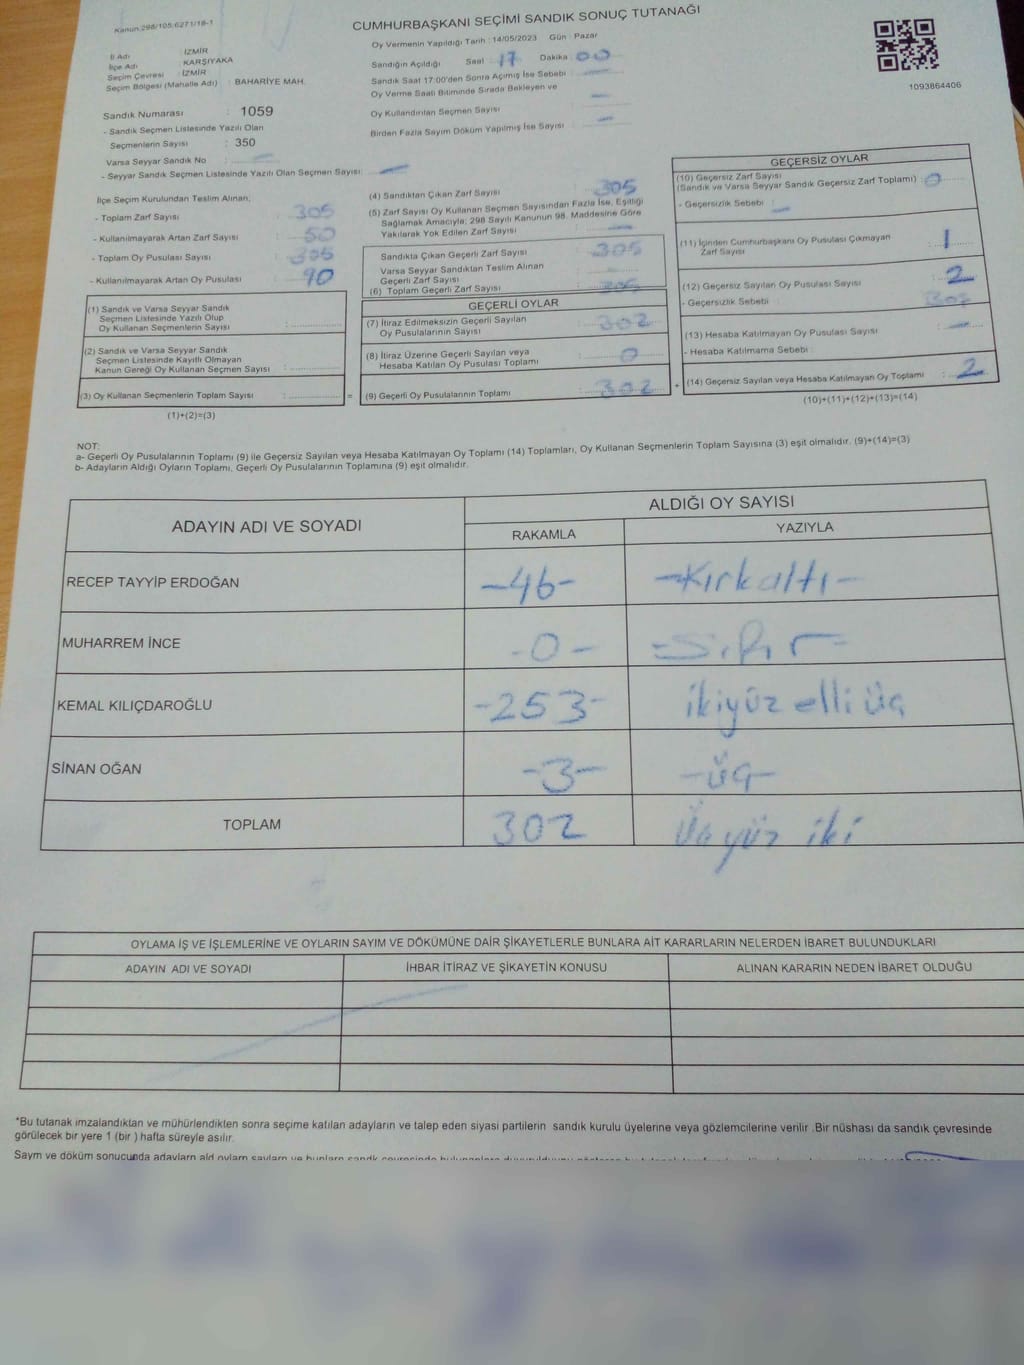 Kanun:298/105,6271/18-1
CUMHURBAŞKANI SEÇİMİ SANDIK SONUÇ TUTANAĞI
Oy Vermenin Yapıldığı Tarih : 14/05/2023 Gün : Pazar
İl Adı : İZMİR
İlçe Adı : KARŞIYAKA
Seçim Çevresi : İZMİR
Seçim Bölgesi (Mahalle Adı) : BAHARİYE MAH.
Sandık Numarası : 1059
- Sandık Seçmen Listesinde Yazılı Olan
Seçmenlerin Sayısı : 350
Varsa Seyyar Sandık No :
- Seyyar Sandık Seçmen Listesinde Yazılı Olan Seçmen Sayısı :
Sandığın Açıldığı Saat : 17 Dakika : 00
Sandık Saat 17:00'den Sonra Açımış İse Sebebi :
Oy Verme Saati Bitiminde Sırada Bekleyen ve
Oy Kullandırılan Seçmen Sayısı :
Birden Fazla Sayım Döküm Yapılmış İse Sayısı :
1093864406
İlçe Seçim Kurulundan Teslim Alınan;
- Toplam Zarf Sayısı : 305
- Kullanılmayarak Artan Zarf Sayısı : 50
- Toplam Oy Pusulası Sayısı : 305
- Kullanılmayarak Artan Oy Pusulası : 90
(1) Sandık ve Varsa Seyyar Sandık
Seçmen Listesinde Yazılı Olup
Oy Kullanan Seçmenlerin Sayısı :
(2) Sandık ve Varsa Seyyar Sandık
Seçmen Listesinde Kayıtlı Olmayan
Kanun Gereği Oy Kullanan Seçmen Sayısı :
(3) Oy Kullanan Seçmenlerin Toplam Sayısı :
(1)+(2)=(3)
(4) Sandıktan Çıkan Zarf Sayısı : 305
(5) Zarf Sayısı Oy Kullanan Seçmen Sayısından Fazla İse, Eşitliği
Sağlamak Amacıyla; 298 Sayılı Kanunun 98. Maddesine Göre
Yakılarak Yok Edilen Zarf Sayısı :
Sandıkta Çıkan Geçerli Zarf Sayısı : 305
Varsa Seyyar Sandıktan Teslim Alınan
Geçerli Zarf Sayısı :
(6) Toplam Geçerli Zarf Sayısı : 305
GEÇERLİ OYLAR
(7) İtiraz Edilmeksizin Geçerli Sayılan
Oy Pusulalarının Sayısı : 302
(8) İtiraz Üzerine Geçerli Sayılan veya
Hesaba Katılan Oy Pusulası Toplamı : 0
= (9) Geçerli Oy Pusulalarının Toplamı : 302 +
GEÇERSİZ OYLAR
(10) Geçersiz Zarf Sayısı
(Sandık ve Varsa Seyyar Sandık Geçersiz Zarf Toplamı) : 0
- Geçersizlik Sebebi :
(11) İçinden Cumhurbaşkanı Oy Pusulası Çıkmayan
Zarf Sayısı : 1
(12) Geçersiz Sayılan Oy Pusulası Sayısı : 2
- Geçersizlik Sebebi : 302
(13) Hesaba Katılmayan Oy Pusulası Sayısı :
- Hesaba Katılmama Sebebi :
(14) Geçersiz Sayılan veya Hesaba Katılmayan Oy Toplamı : 2
(10)+(11)+(12)+(13)=(14)
NOT:
a- Geçerli Oy Pusulalarının Toplamı (9) ile Geçersiz Sayılan veya Hesaba Katılmayan Oy Toplamı (14) Toplamları, Oy Kullanan Seçmenlerin Toplam Sayısına (3) eşit olmalıdır. (9)+(14)=(3)
b- Adayların Aldığı Oyların Toplamı, Geçerli Oy Pusulalarının Toplamına (9) eşit olmalıdır.
ADAYIN ADI VE SOYADI ALDIĞI OY SAYISI
RAKAMLA YAZIYLA
RECEP TAYYİP ERDOĞAN -46- -Kırkaltı-
MUHARREM İNCE -0- -Sıfır-
KEMAL KILIÇDAROĞLU -253- ikiyüz elli üç
SİNAN OĞAN -3- -üç-
TOPLAM 302 Üçyüz iki
OYLAMA İŞ VE İŞLEMLERİNE VE OYLARIN SAYIM VE DÖKÜMÜNE DAİR ŞİKAYETLERLE BUNLARA AİT KARARLARIN NELERDEN İBARET BULUNDUKLARI
ADAYIN ADI VE SOYADI İHBAR İTİRAZ VE ŞİKAYETİN KONUSU ALINAN KARARIN NEDEN İBARET OLDUĞU
*Bu tutanak imzalandıktan ve mühürlendikten sonra seçime katılan adayların ve talep eden siyasi partilerin sandık kurulu üyelerine veya gözlemcilerine verilir .Bir nüshası da sandık çevresinde
görülecek bir yere 1 (bir ) hafta süreyle asılır.